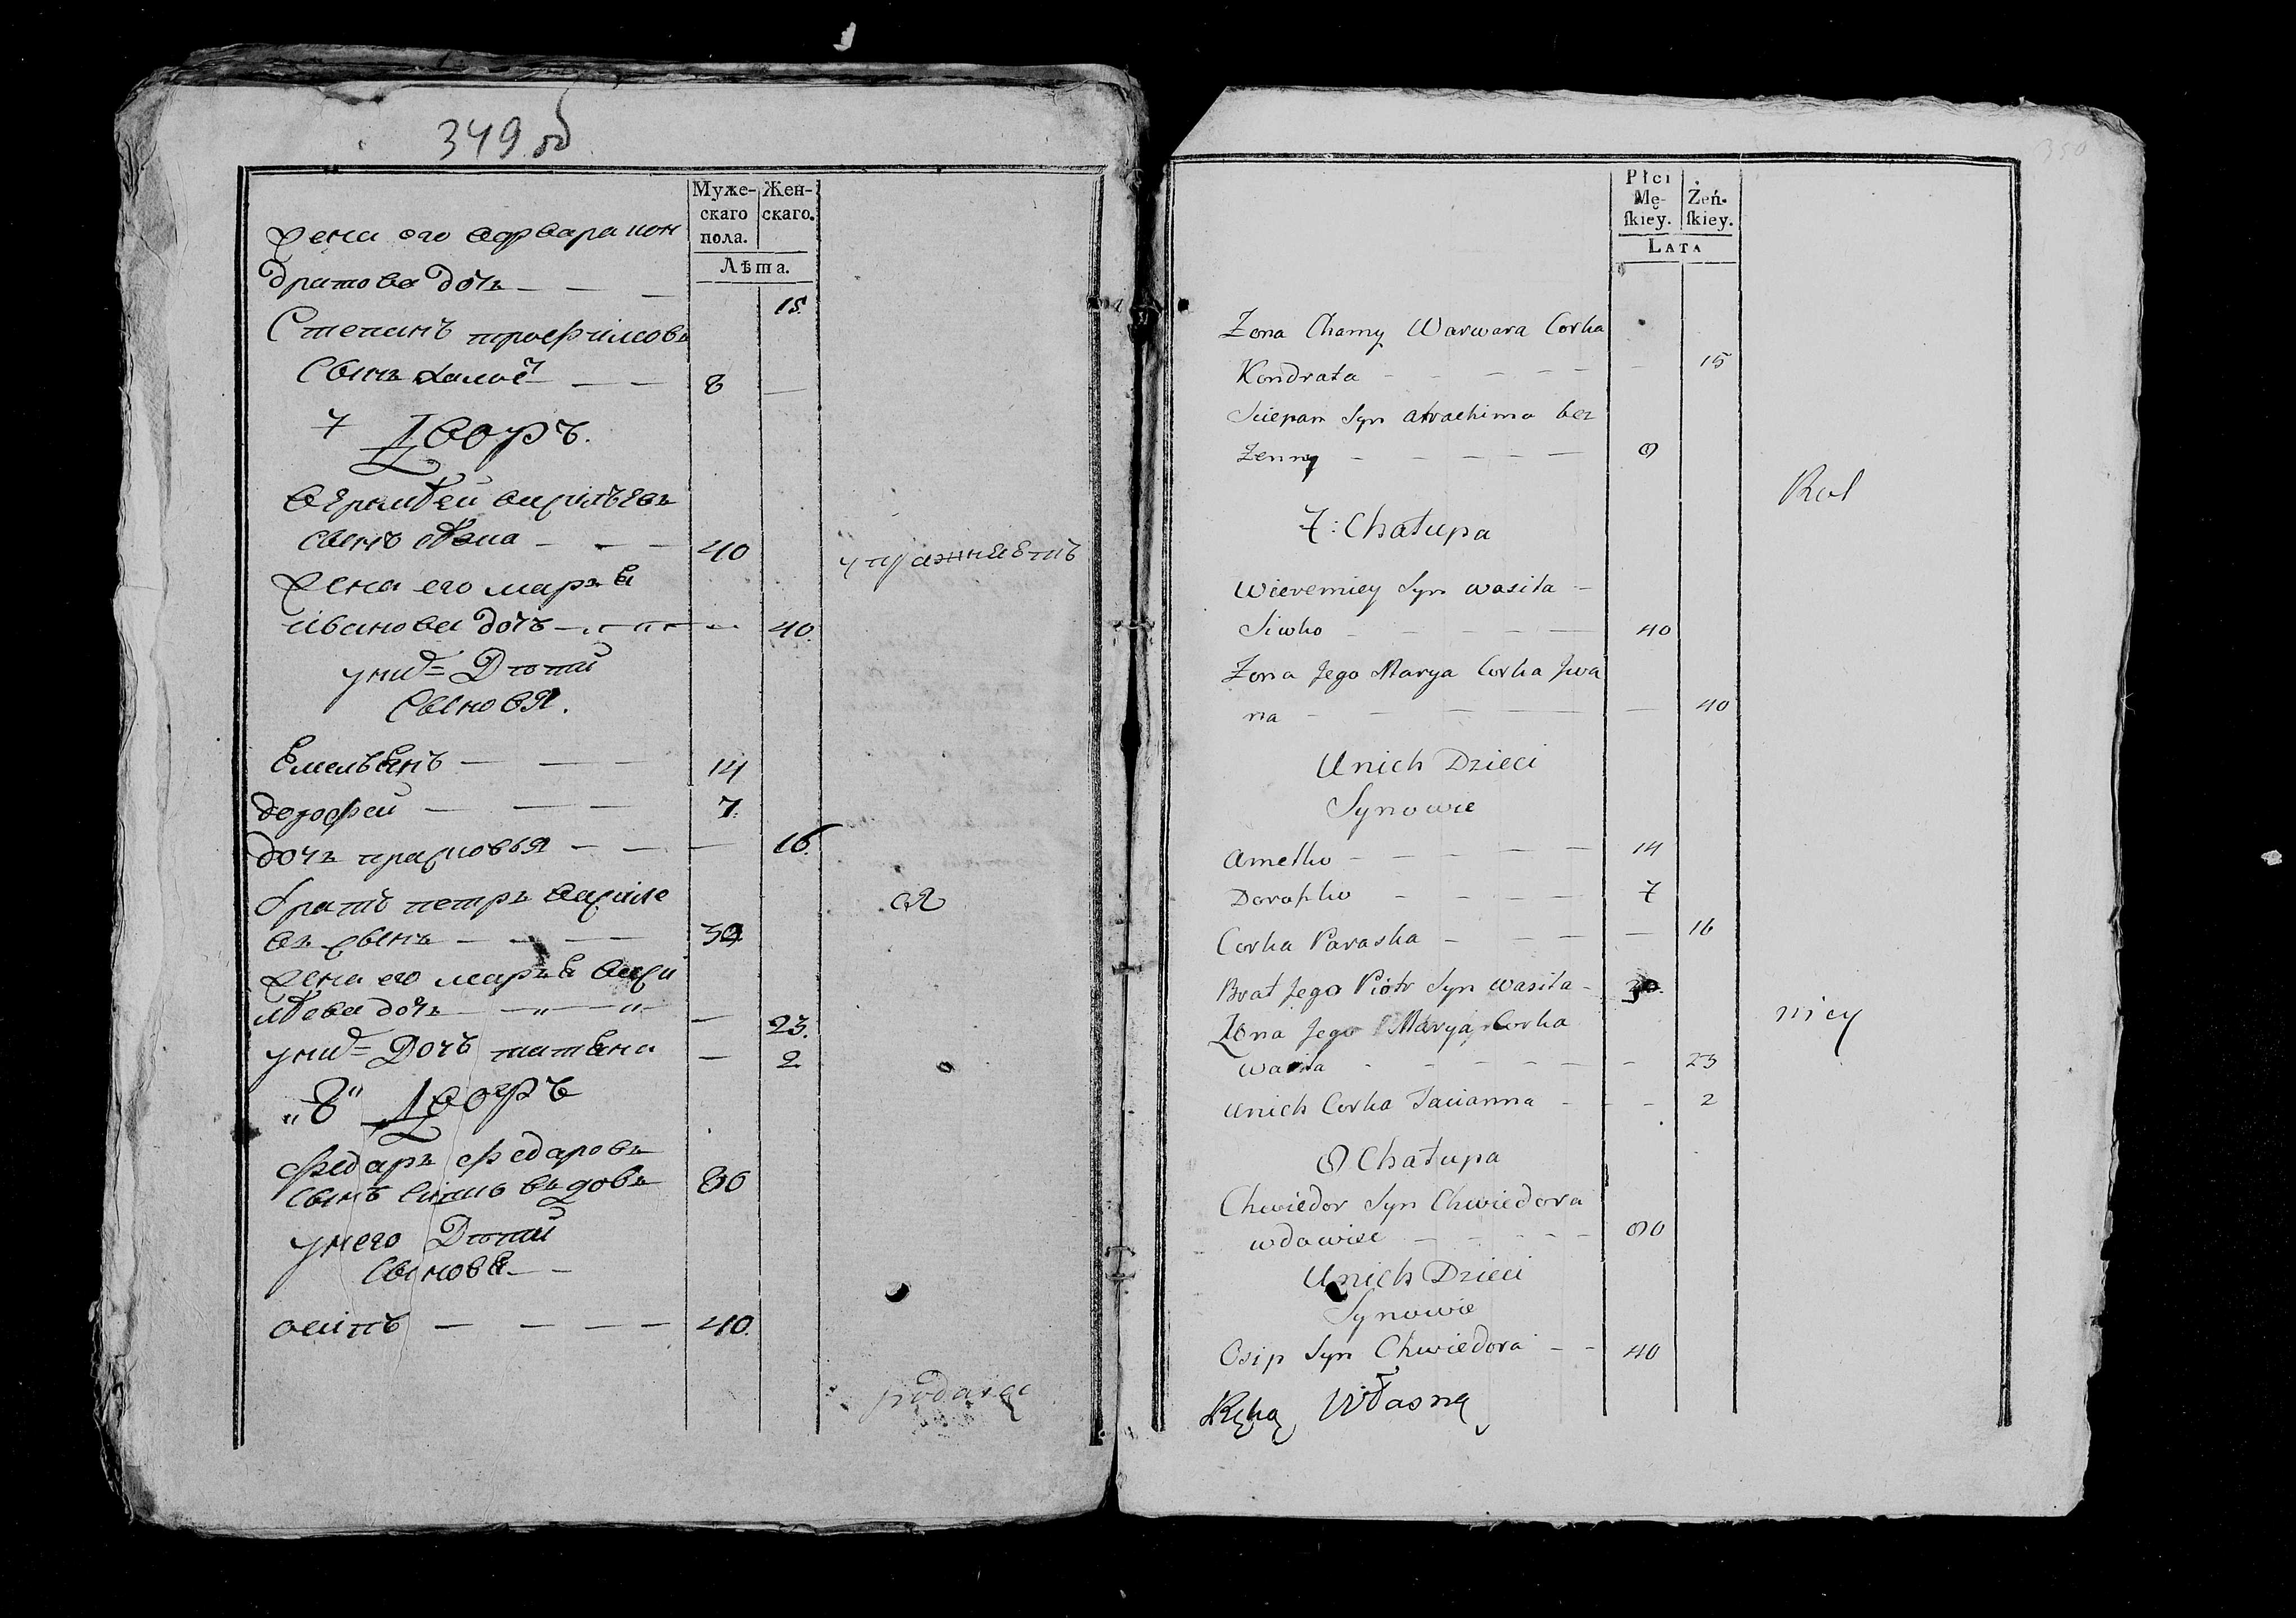 349 об
Муже-
скаго
пола.
Жен-
скаго.
Лѣта.
жена его варвара кон
дратова дочь — — — 15.
Степанъ трофимовъ
сынъ холос — — 8 —
7 Дворъ.
сынъ — — — 40
жена его марья
иванова дочь — 40.
у них Дѣтей
Сыновя.
Емельянъ — — — 14
дорофей — — — 7.
дочь прасковья — — — 16.
братъ петръ василе
въ сынъ — — — 30
жена его марья васи
лева дочь — — — 23.
у них Дочь татьяна — 2
„8“ Дворъ
федаръ федаровъ
сынъ вдовъ 80
у него Дѣтей
Сыновья — —
осипъ — — — — 40.
podaną
350
Płci
Mę-
ſkiey.
Żeń-
ſkiey.
LATA
Zona Chamy Warwara Corka
Kondrata — — — — — 15
Sciepan Syn atrachima bez
Zenny — — — — — 8
Rol
7: Chałupa
Wieremiey Syn wasila —
Siwko — — — — 40
Zona Jego Marya Corka Jwa
na — — — — — 40
Unich Dzieci
Synowie
Amelko — — — — — 14
Daraſzko — — — — 7
Corka Paraska — — — — 16
Brat Jego Piotr Syn wasila — 30.
Zona Jego Marya Corka
wasila — — — — — — 23
nicy
Unich Corka Tacianna — — — 2
8 Chałupa
Chwiedor Syn Chwiedora
wdowiec — — — — — 80
Unich Dzieci
Synowie
Osip Syn Chwiedora — — 40
Ręką Własną